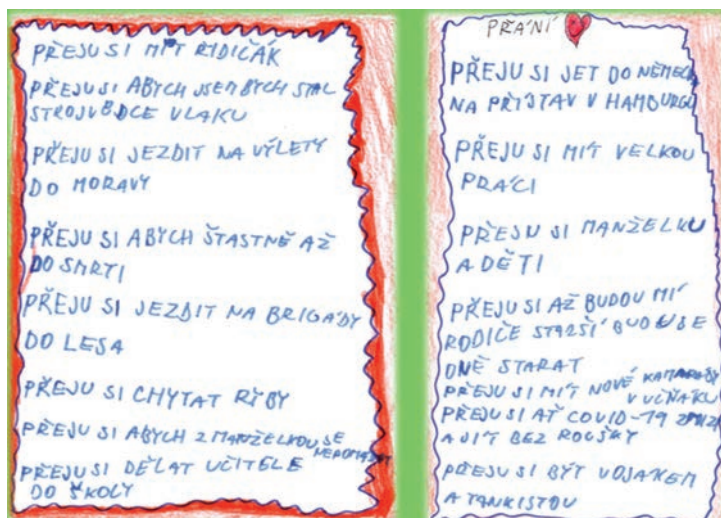 PŘEJU SI MÍT ŘIDIČÁK
PŘEJU SI ABYCH JSEM BYCH STAL
STROJVŮDCE VLAKU
PŘEJU SI JEZDIT NA VÝLETY
DO MORAVY
PŘEJU SI ABYCH ŠTASTNĚ AŽ
DO SMRTI
PŘEJU SI JEZDIT NA BRIGÁDY
DO LESA
PŘEJU SI CHYTAT RYBY
PŘEJU SI ABYCH Z MANŽELKOU SE
PŘEJU SI DĚLAT UČITELE
DO ŠKOLY
PŘÁNÍ
PŘEJU SI JET DO
NA PŘÍSTAV V HAMBURGU
PŘEJU SI MÍT VELKOU
PRÁCI
PŘEJU SI MANŽELKU
A DĚTI
PŘEJU SI AŽ BUDOU MÍ
RODIČE STARŠÍ BUDU SE
O NĚ STARAT
PŘEJU SI MÍT NOVÉ KAMARÁDY
V UČŇÁKU
PŘEJU SI AŤ COVID-19
A JÍT BEZ ROUŠKY
PŘEJU SI BÝT VOJÁKEM
A TANKISTOU